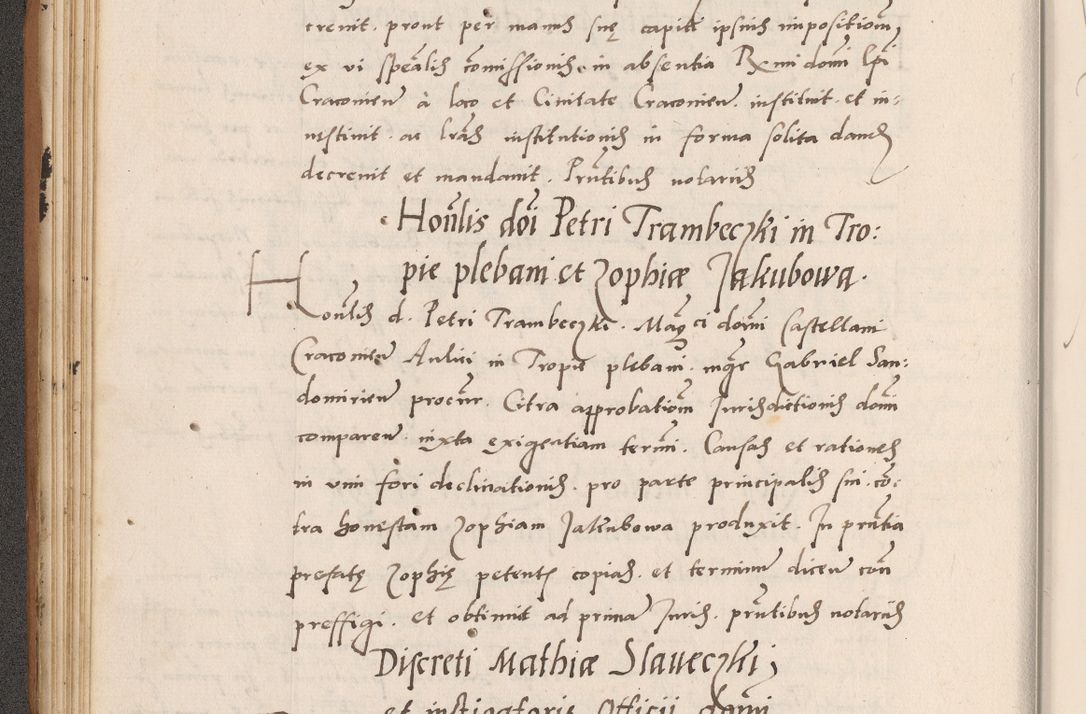 crevit. prout per manus suę capiti ipsius impositiom,
ex vi spẽalis cõmissionis. in absentia Rxmi domi Ep̃i
Cracovien̄ à loco et Civitate Cracovien̄. instituit. et in-
vestivit. ac lr̃as institutionis in forma solita dandas
decrevit et mandavit. Prñtibus notariis
Hon̄lis dõi Petri Trambeczki in Tro:
pie plebani et Zophiæ Jakubowa.
Hon̄lis d. Petri Trambeczki. Magci domi Castellani
Cracovien̄ Aulici in Tropie plebani. mgr Gabriel San:
domirien̄ procur̄. Citra approbatiom Jurisdictionis domi
comparen̄. iuxta exigentiam termi. Causas et rationes
in vim fori declinationis. pro parte principalis sui. cõ-
tra honestam Zophiam Jakubowa produxit. In prñtia
prefatę Zophię petentis copias. et terminum dicen̄ con̄
preffigi. et obtinuit ad prima Juris. prñtibus notariis
Discreti Mathiæ Slaveczki,
et instigatoris Officii domi